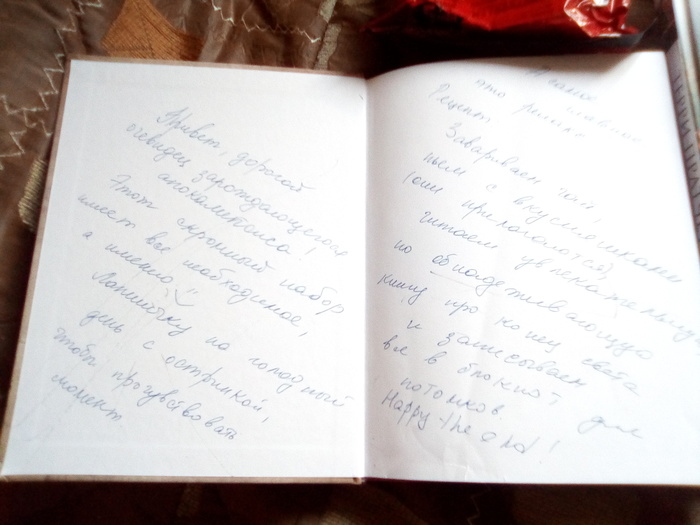 Привет, дорогой
очевидец зарождающегося
апокалипсиса!
Этот скромный набор
имеет все необходимое,
а именно:
Лапшичку на голодный
день с остринкой,
чтобы прочувствовать
момент
А самое главное
это
Рецепт
Завариваем чай,
пьем с вкусняшками
(они прилагаются)
читаем увлекательную
но обнадеживающую
книгу про конец света
и записываем
все в блокнот для
потомков
Happy the end!